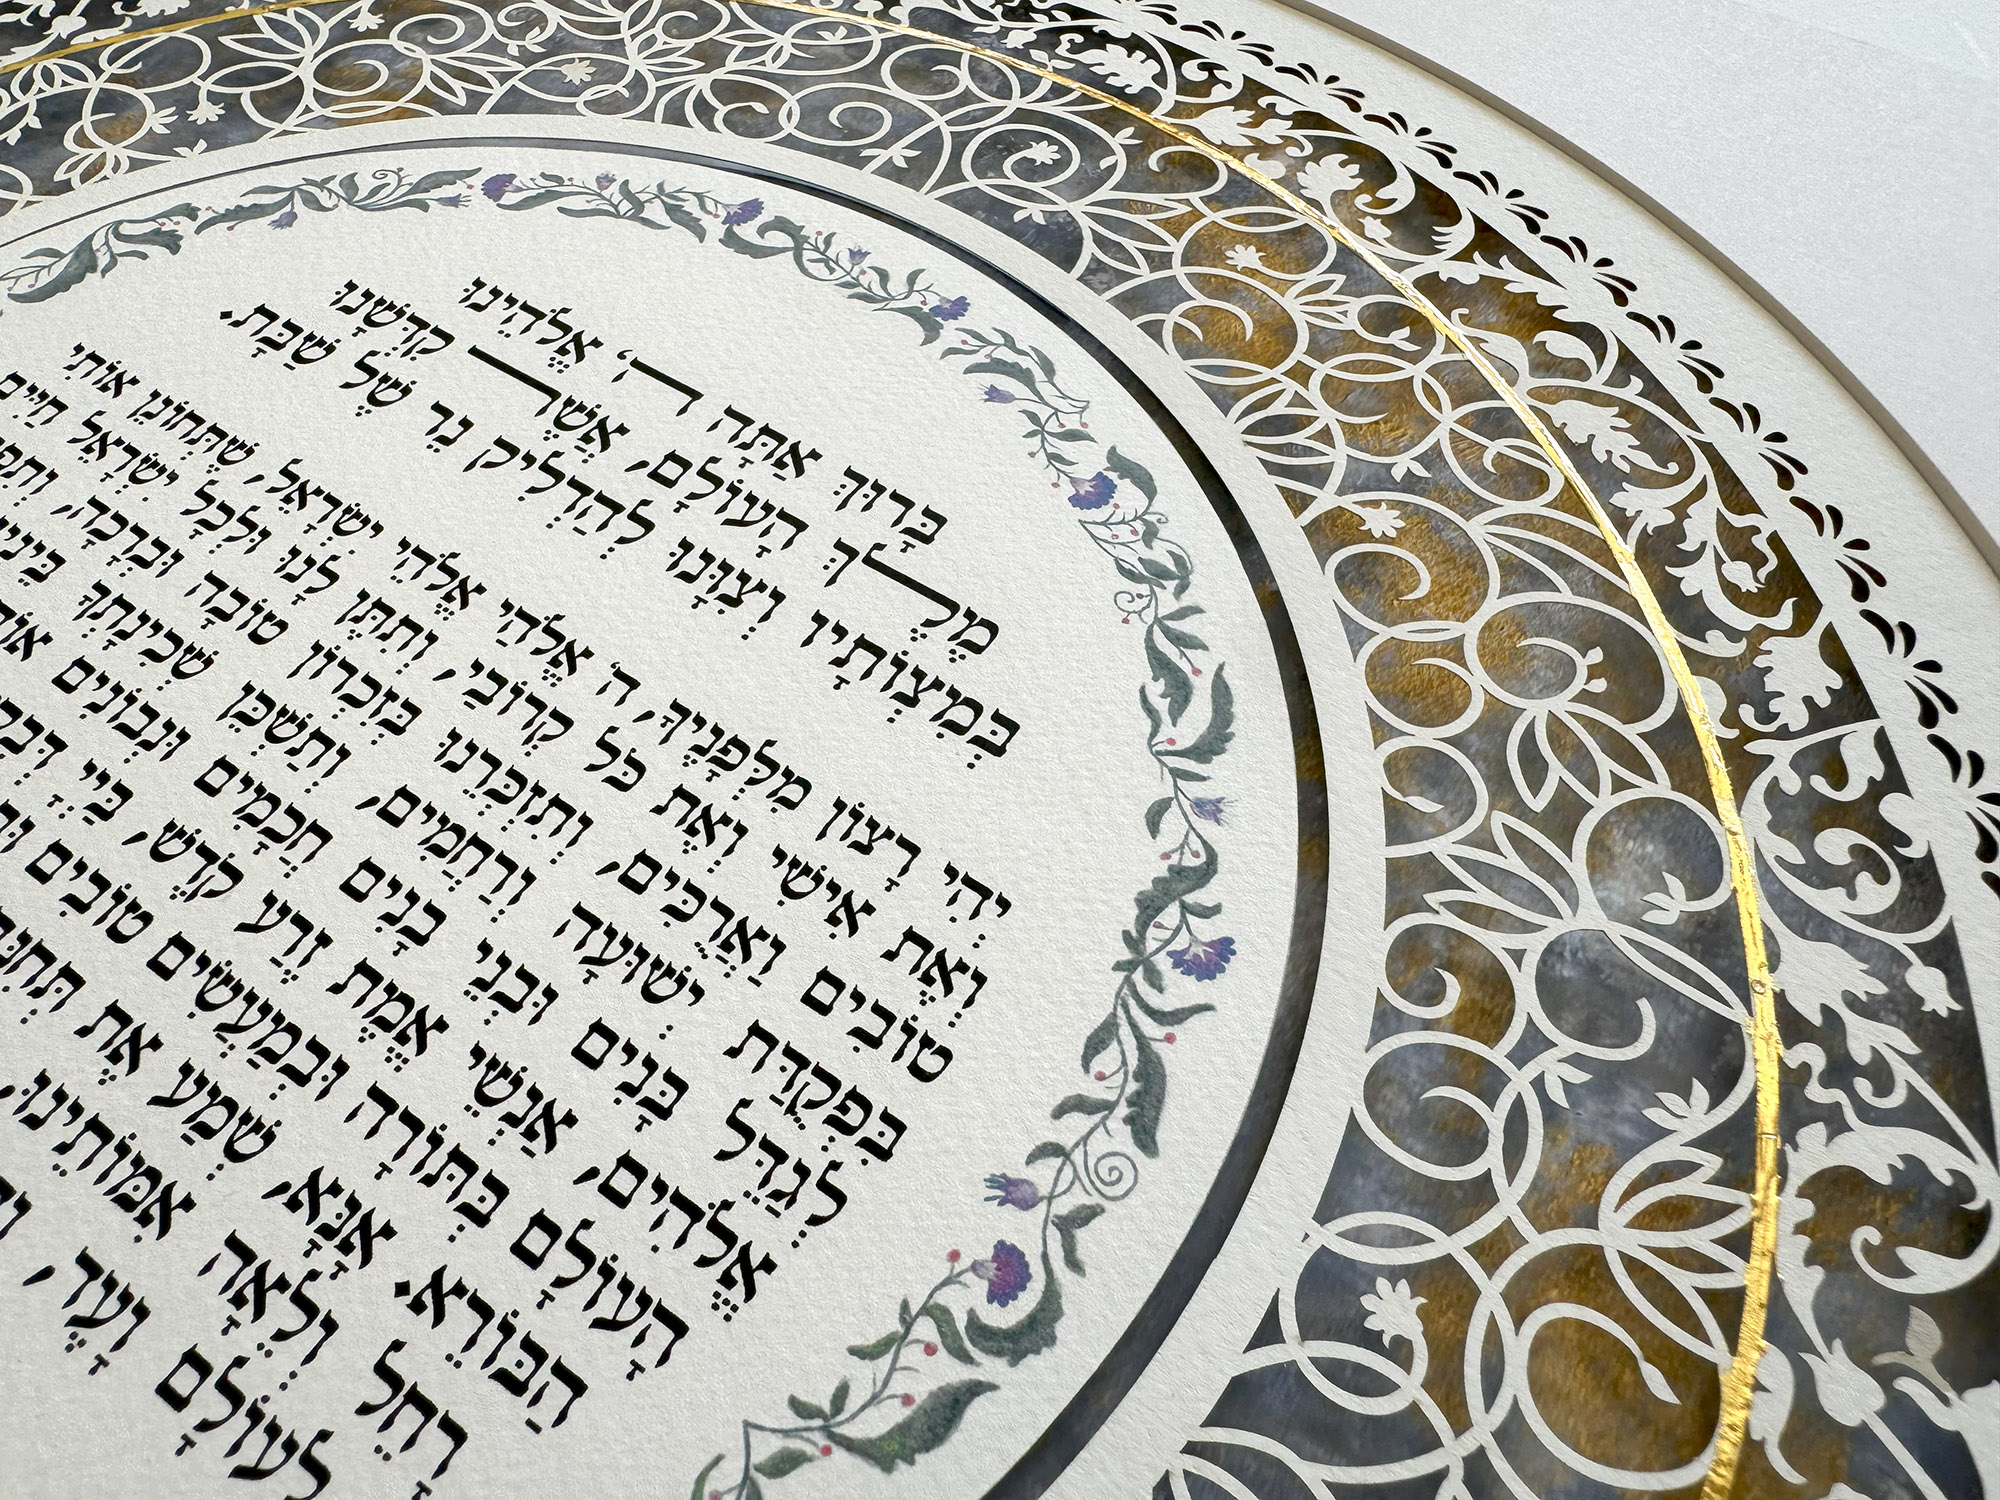 בָּרוּךְ אַתָּה ה׳ אֱלֹהֵינוּ
מֶלֶךְ הָעוֹלָם, אֲשֶׁר קִדְּשָׁנוּ
בְּמִצְוֹתָיו וְצִוָּנוּ לְהַדְלִיק נֵר שֶׁל שַׁבָּת.
יְהִי רָצוֹן מִלְּפָנֶיךָ, ה׳ אֱלֹהַי אֱלֹהֵי יִשְׂרָאֵל, שֶׁתְּחוֹנֵן אוֹתִי
וְאֶת אִישִׁי וְאֶת כֹּל קְרוֹבַי, וְתִתֵּן לָנוּ וּלְכָל יִשְׂרָאֵל חַיִּים
טוֹבִים וַאֲרֻכִּים, וְתִזְכְּרֵנוּ בְּזִכְרוֹן טוֹבָה וּבְרָכָה,
בִּפְקֻדַּת יְשׁוּעָה וְרַחֲמִים, וְתַשְׁכֵּן שְׁכִינָתְךָ
לְגַדֵּל בָּנִים וּבְנֵי בָנִים חֲכָמִים וּנְבוֹנִים
אֱלֹהִים, אַנְשֵׁי אֱמֶת זֶרַע קֹדֶשׁ, בַּיְיָ
הָעוֹלָם בְּתוֹרָה וּבְמַעֲשִׂים טוֹבִים
הַבּוֹרֵא. אָנָּא, שְׁמַע אֶת
רָחֵל וְלֵאָה אִמּוֹתֵינוּ,
לְעוֹלָם וָעֶד,